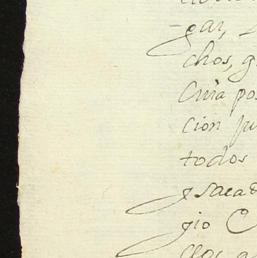 gar,
chos, g
Cuia pos
cion ju
todos
y saca
gio C